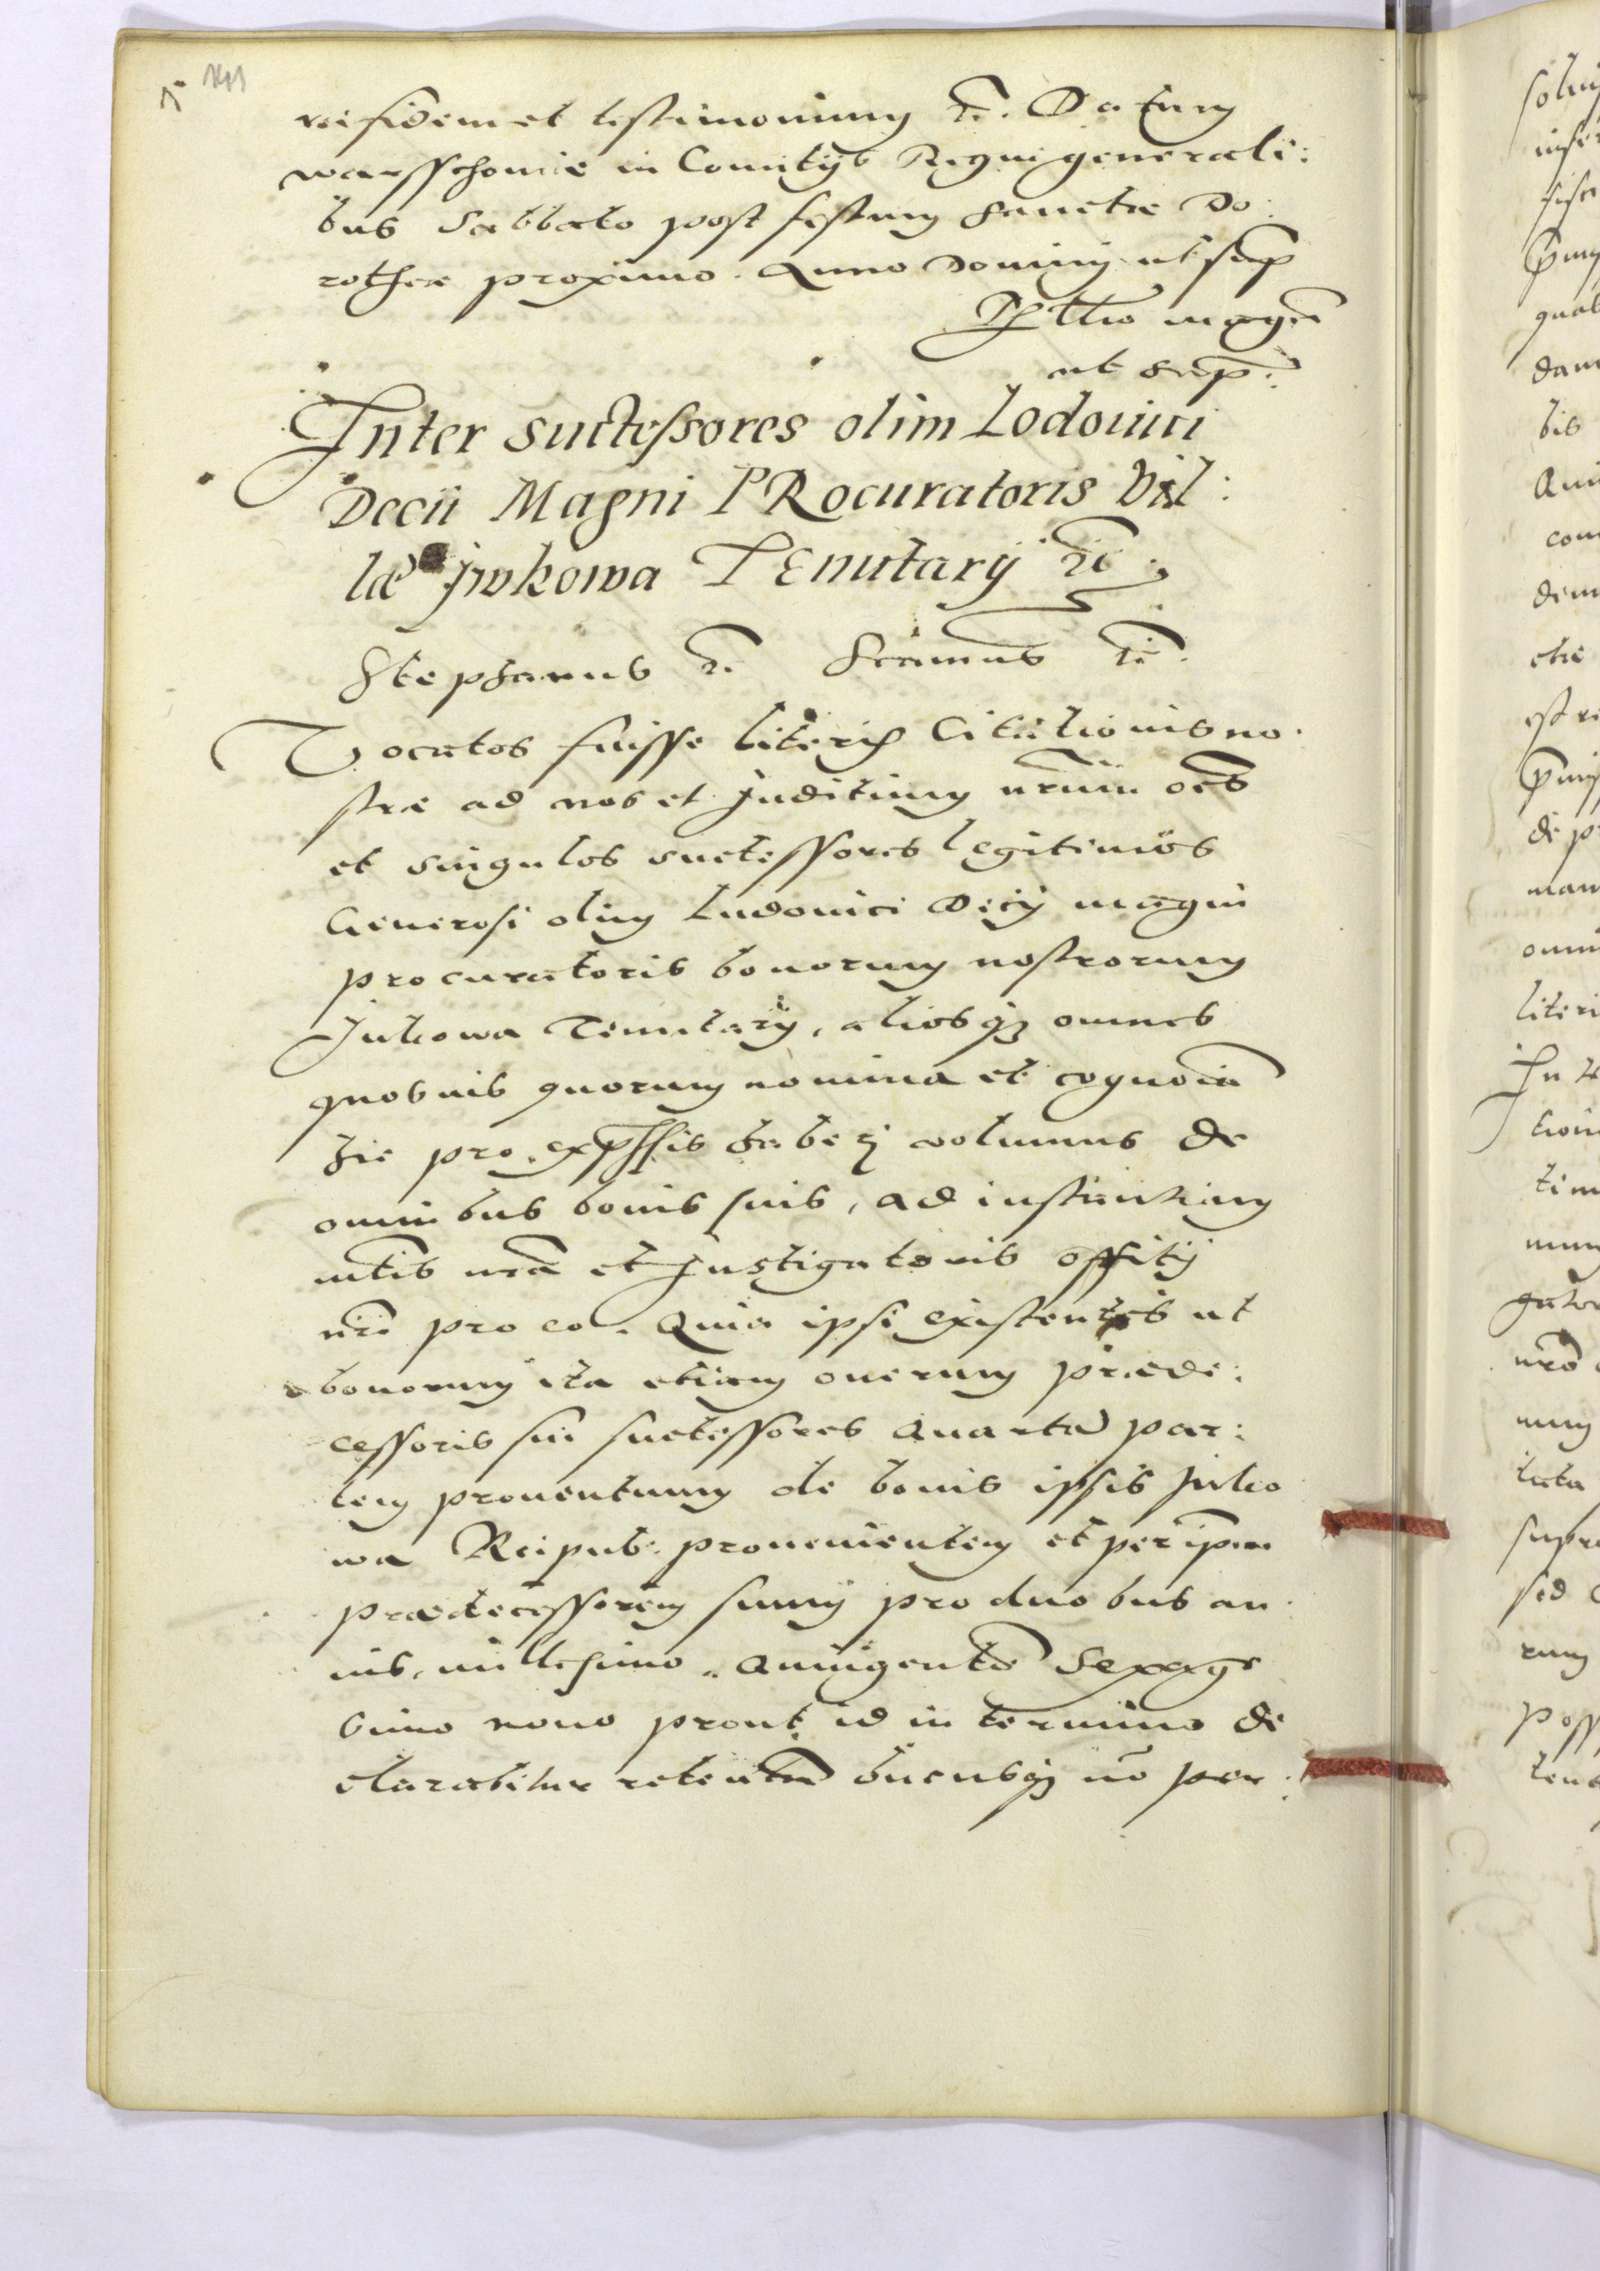 rei fidem et testimonium etc. Datum
warsschoviæ in Comitijs Regni generali:
bus Sabbato post festum sanctæ Do:
rotheæ proximo. Anno Domini ut sup
R͞tio magci
ut sup:
Inter suctessores olim Lodouici
Decii Magni PRocuratoris Vil:
læ Jwkowa TEnutarij etc
Stephanus etc. Scimus etc.
Vocatos fuisse literis Citationis no:
stræ ad nos et Juditium nrum oēs
et singulos suctessores legitimos
Generosi olim Ludouici Decij magni
procuratoris bonorum nostrorum
Jukowa Tenutarij, aliosq; omnes
quosuis quorum nomina et cognoīa
hic pro exp̄ssis haberi volumus de
omnibus bonis suis, ad instantiam
mtis nrā et Justigatoris offitij
nri pro eo. Quia ipsi existentes ut
bonorum ita etiam onerum præde:
cessoris sui suctessores quartā par:
tem prouentuum de bonis ipsis Juko
wa Reipub: prouenientem et per ipm
prædecessorem suum pro duobus an:
nis, millesimo Quingentō Sexage
simo nono prout id in termino de
clarabitur retentā hucusq; nō per: